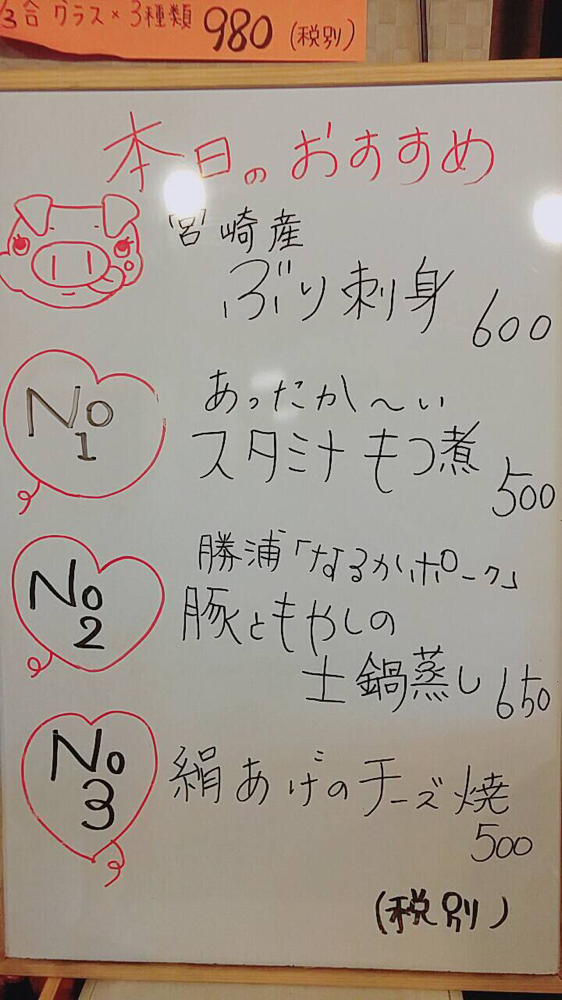 ⅓合 グラス×3種類 980 (税別)
本日のおすすめ
宮崎産
ぶり刺身 600
No 1
あったか〜い
スタミナもつ煮 500
No 2
勝浦「なるかポーク」
豚ともやしの
土鍋蒸し 650
No 3
絹あげのチーズ焼
500
(税別)